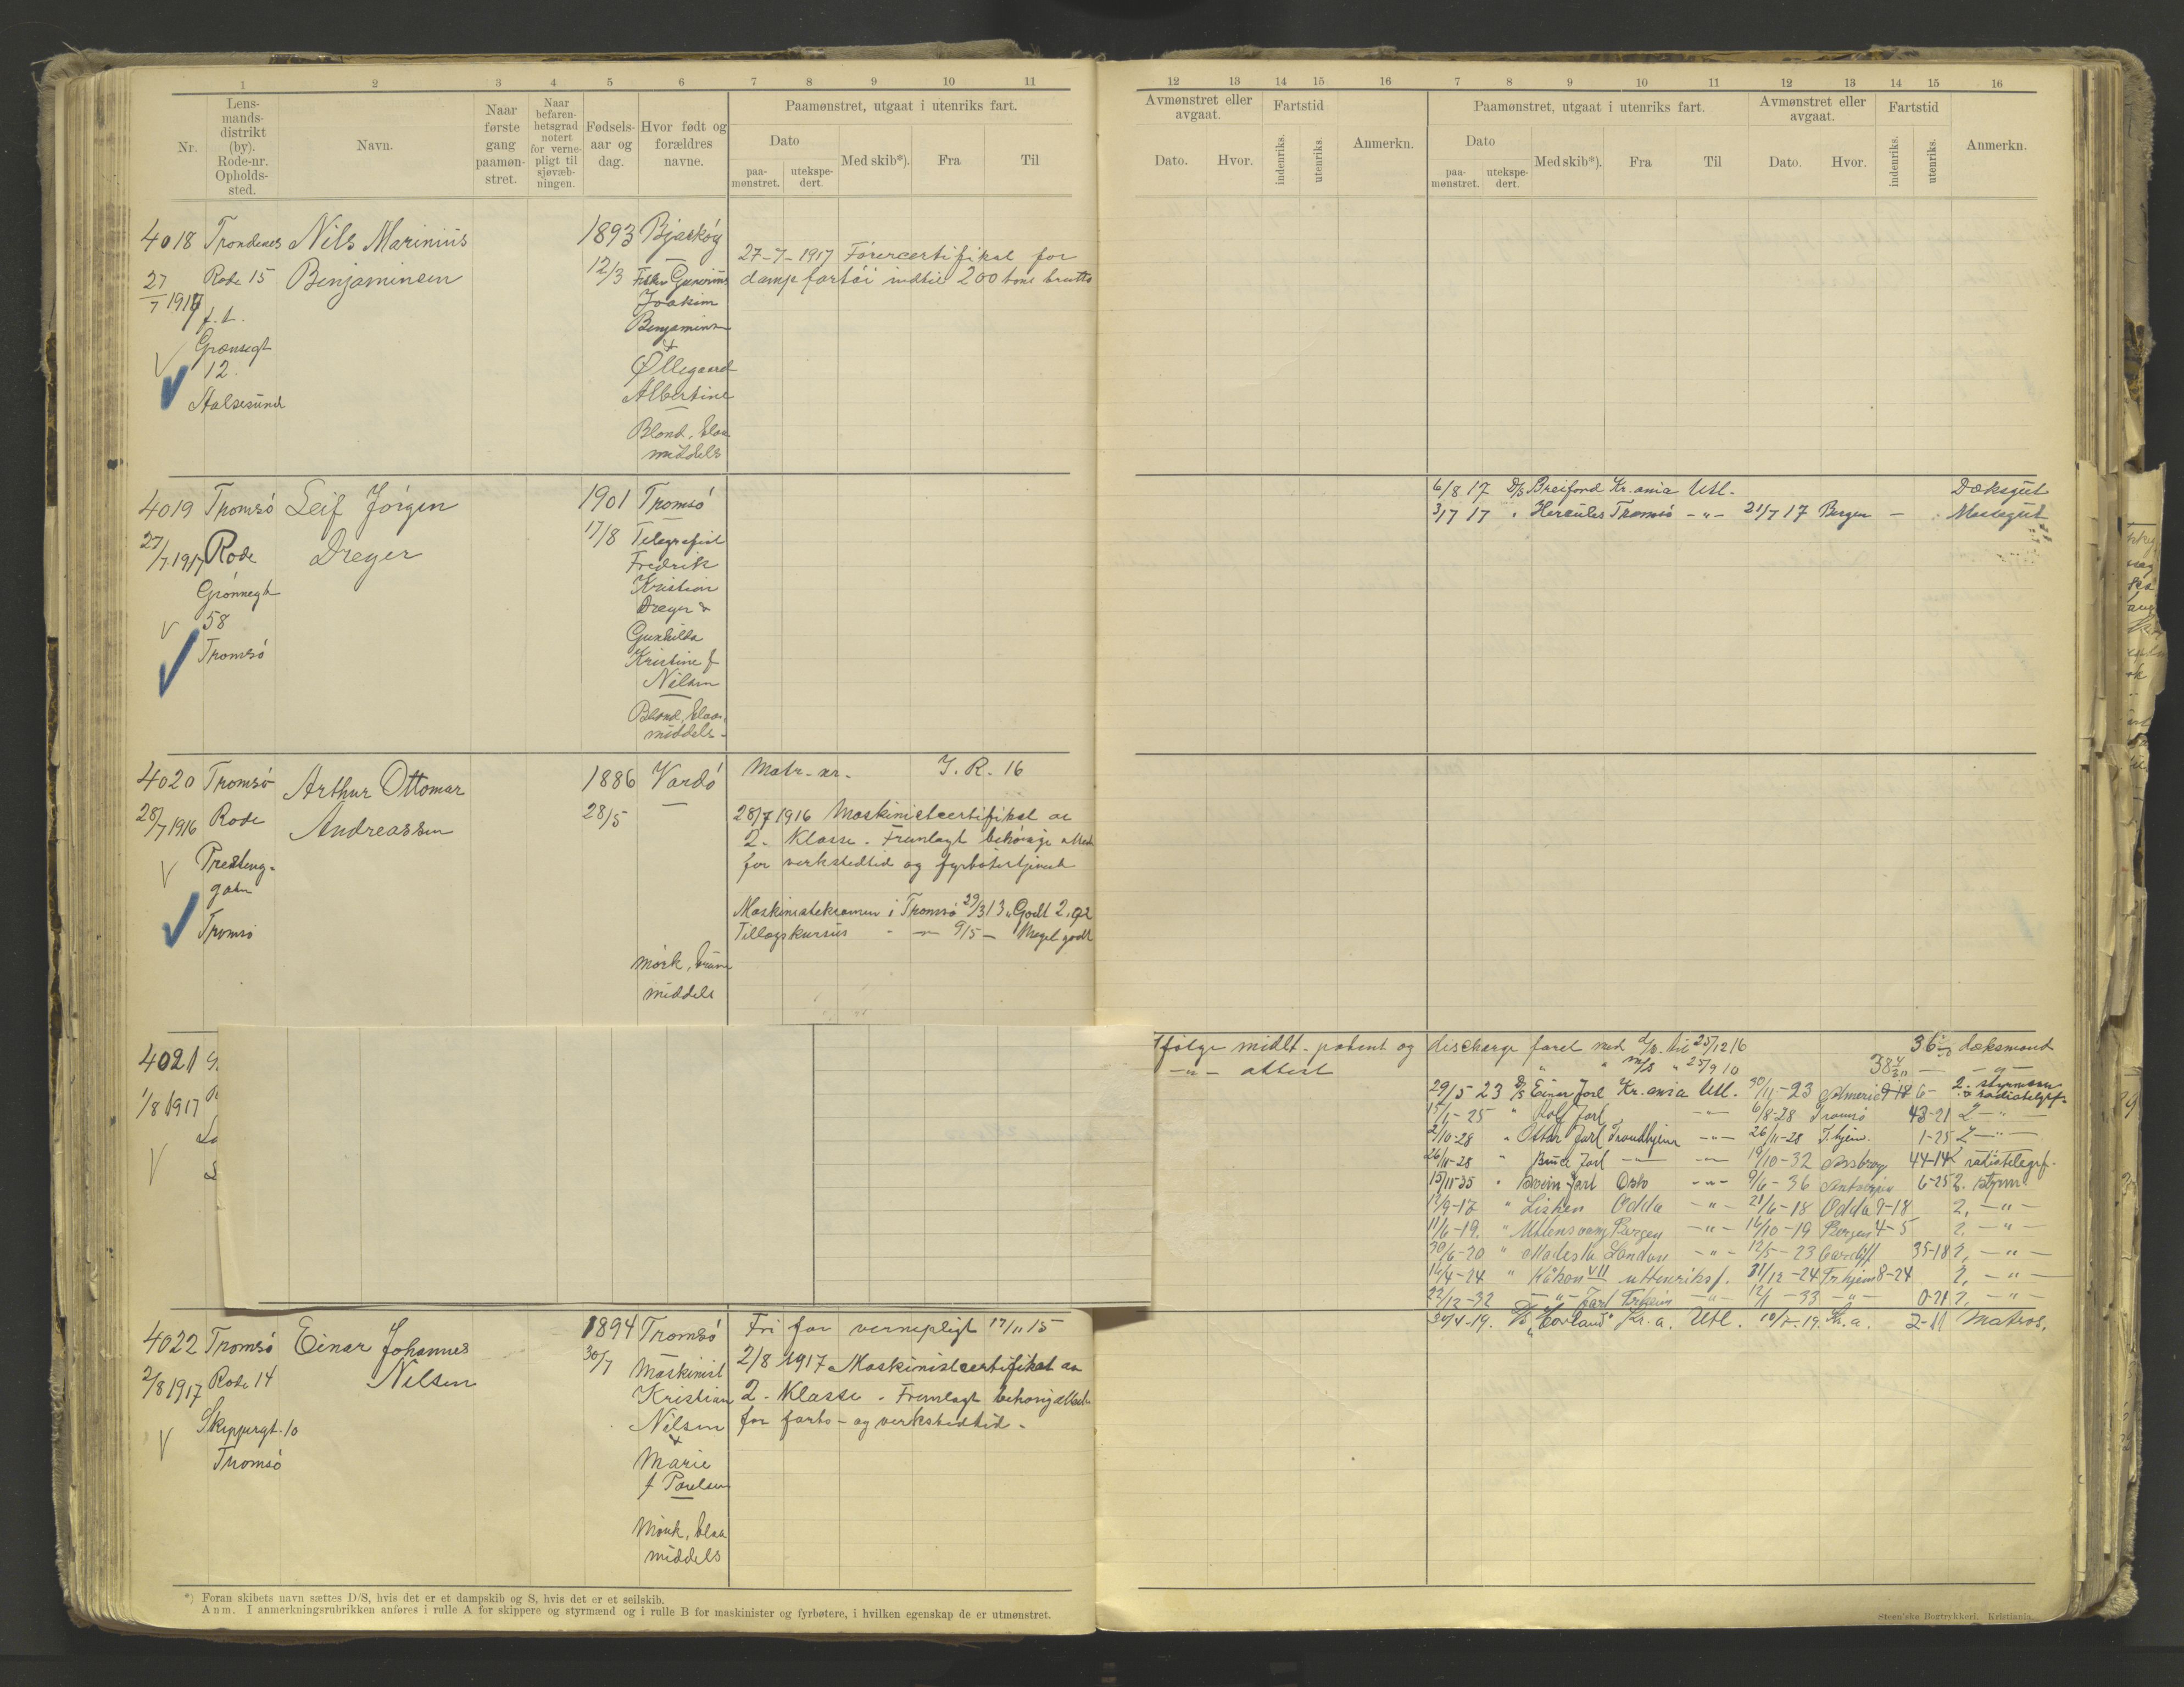 1 2 3 4 5 6 7 8 9 10 11
Nr.
Lens-
mands-
distrikt
(by).
Rode-nr.
Opholds-
sted.
Navn.
Naar
første
gang
paamøn-
stret.
Naar
befaren-
hetsgrad
notert
for verne-
pligt til
sjøvæb-
ningen.
Fødsels-
aar og
dag.
Hvor født og
forældres
navne.
Paamønstret, utgaat i utenriks fart.
Dato
paa-
mønstret.
utekspe-
dert.
Med skib*).
Fra
Til
4018 Trondenes Nils Marinius 1893 Bjarkøy
27/7 1917 Rode 15 Benjaminsen 12/3
f.t.
Grønsegt
12
Aalesund
Joakim
Benjaminsen
+
Øllegaard
Albertine
Blond, blaa
middels
27-7-1917 Førercertifikat for
dampfartøi indtil 200 tons brutto
4019 Tromsø Leif Jørgen 1901 Tromsø
27/7 1917 Rode Dreyer 17/8 Telegrafist
Grønnegt
58
Tromsø
Fredrik
Kristian
Dreyer &
Gunhilda
Kristine f
Nilsen
Blond, blaa,
middels -
4020 Tromsø Arthur Ottomar 1886 Vardø
28/7 1916 Rode Andreassen 28/5
Presteng-
gaten
Tromsø
mørk, brune
middels
Matr-nr. I.R. 16
28/7 1916 Maskinistcertifikat av
2. Klasse. Fremlagt behørige attest
for verkstedtid og fyrbøtertjenest
Maskinisteksamen i Tromsø 29/3 13 "Godt 2,92
Tillægskursus " — 9/5 — Meget godt
4021
1/8 1917
4022 Tromsø Einar Johannes 1894 Tromsø
2/8 1917 Rode 14 Nilsen 30/7 Maskinist
Skippergt. 10
Tromsø
Kristian
Nilsen
+
Marie
f Paulsen
Mørk, blaa
middels
Fri for vernepligt 17/11 15
2/8 1917 Maskinistcertifikat av
2. Klasse. Fremlagt behørig attest
for farts- og verkstedtid.
*) Foran skibets navn sættes D/S, hvis det er et dampskib og S, hvis det er et seilskib.
Anm. I anmerkningsrubrikken anføres i rulle A for skippere og styrmænd og i rulle B for maskinister og fyrbøtere, i hvilken egenskap de er utmønstret.
12 13 14 15 16 7 8 9 10 11 12 13 14 15 16
Avmønstret eller
avgaat.
Dato. Hvor.
Fartstid
indenriks. utenriks.
Anmerkn.
Paamønstret, utgaat i utenriks fart.
Dato
paa-
mønstret.
utekspe-
dert.
Med skib*). Fra Til
Avmønstret eller
avgaat.
Dato. Hvor.
Fartstid
indenriks. utenriks.
Anmerkn.
6/8 17 D/S Breifond Kr.ania Utl. Dæksgut
3/7 17 " Hercules Tromsø -"- 21/7 17 Bergen - Messegut
Ifølge midlt. patent og discharge faret med d/s. til 25/12 16 36 dæksmand
-"- attest " " m/s " 25/9 10 38 -"-
29/5 23 D/S Einar Jarl Kr.ania Utl. 30/11-23 Almeria 6- 2. styrmann
& radiotelegrf.
15/1-25 " Rolf Jarl -"- 6/8-28 Tromsø 43-21 2 -"-
2/10-28 " Ottar Jarl Trondhjem -"- 26/11-28 T.hjem. 1-25 2 -"-
26/11-28 " Jarl -"- 19/10-32 44-14 radiotelegrf.
15/11-35 " Svein Jarl Oslo -"- 9/6-36 Antwerpen 6-25 2. styrm.
12/9-17 " Lisken Odda -"- 21/6-18 Odda 9-18 2, -"-
11/6-19. " Ullensvang Bergen -"- 16/10-19 Bergen 4-5 2, -"-
30/6-20 " Modesta London -"- 12/5-23 Cardiff 35-18 2, -"-
16/4-24 " Håkon VII uttenriksf. 31/12-24 Tr.hjem 8-24 2, -"-
22/12-32 -"- Jarl Tr.heim -"- 12/1-33 -"- 0-21 2, -"-
30/4-19. D/S "Kr.a. Utl. 10/7-19. Kr.a. 2-11 Matros.
Steen'ske Bogtrykkeri. Kristiania.